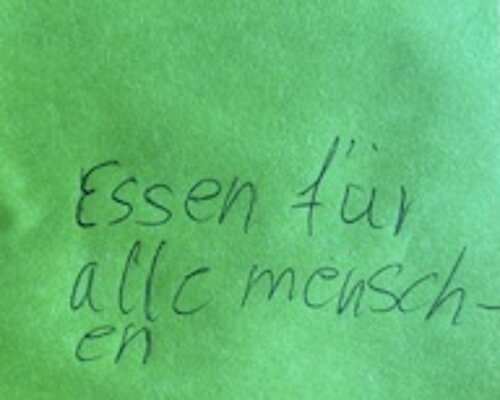 Essen für
alle mensch-
en